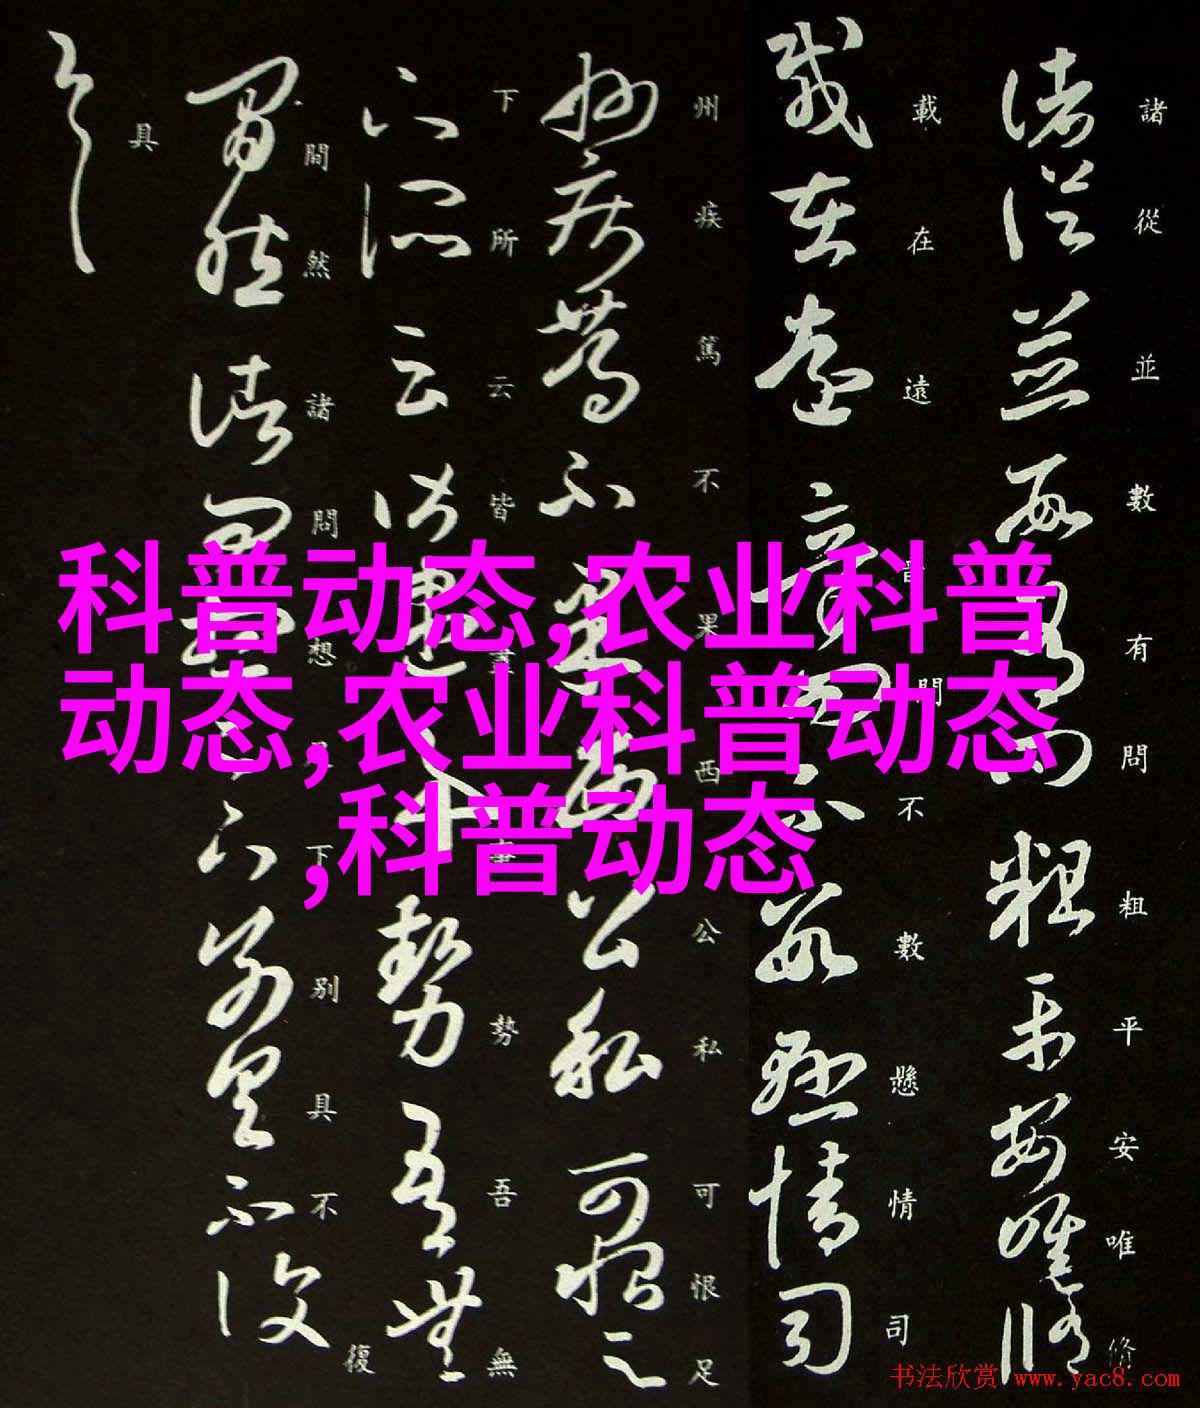 諸從並數有問粗平安唯修
載在遠音問不數懸情司
州疾篤不果西公私可恨足
下所云皆盡事勢吾無
間然諸問想足下别具不復
具
科普动态,农业科普
动态,农业科普动态
,科普动态
书法欣赏 www.yac8.com